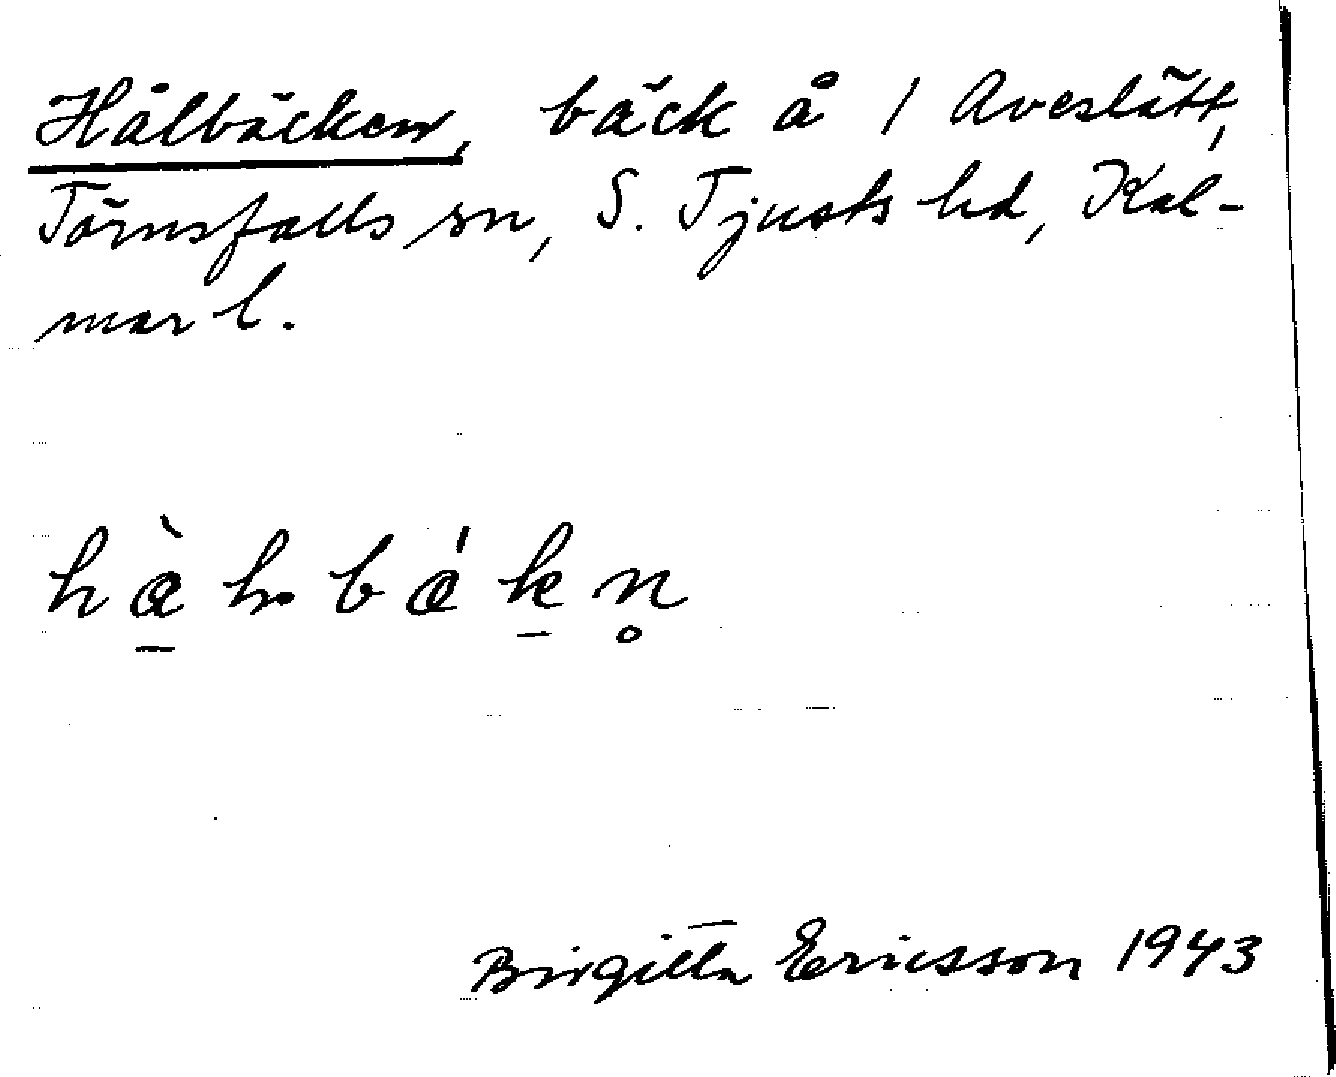 Hålbäcken, bäck å 1 Aveslätt,
Törnsfalls sn, S. Tjusts hd, Kal-
mar l.
Birgitta Ericsson 1943